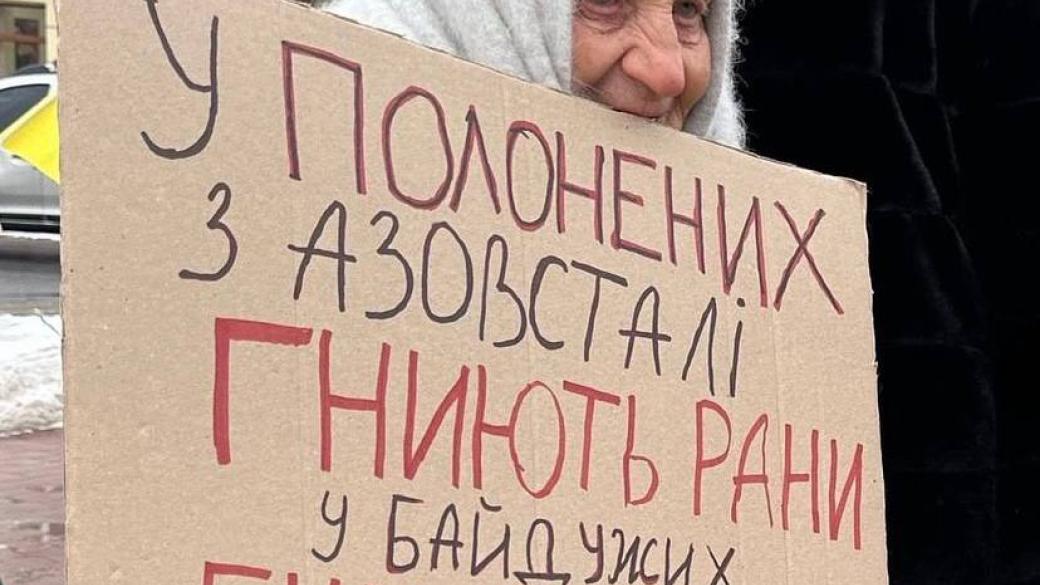 У ПОЛОНЕНИХ
З АЗОВСТАЛІ
ГНИЮТЬ РАНИ
У БАЙДУЖИХ